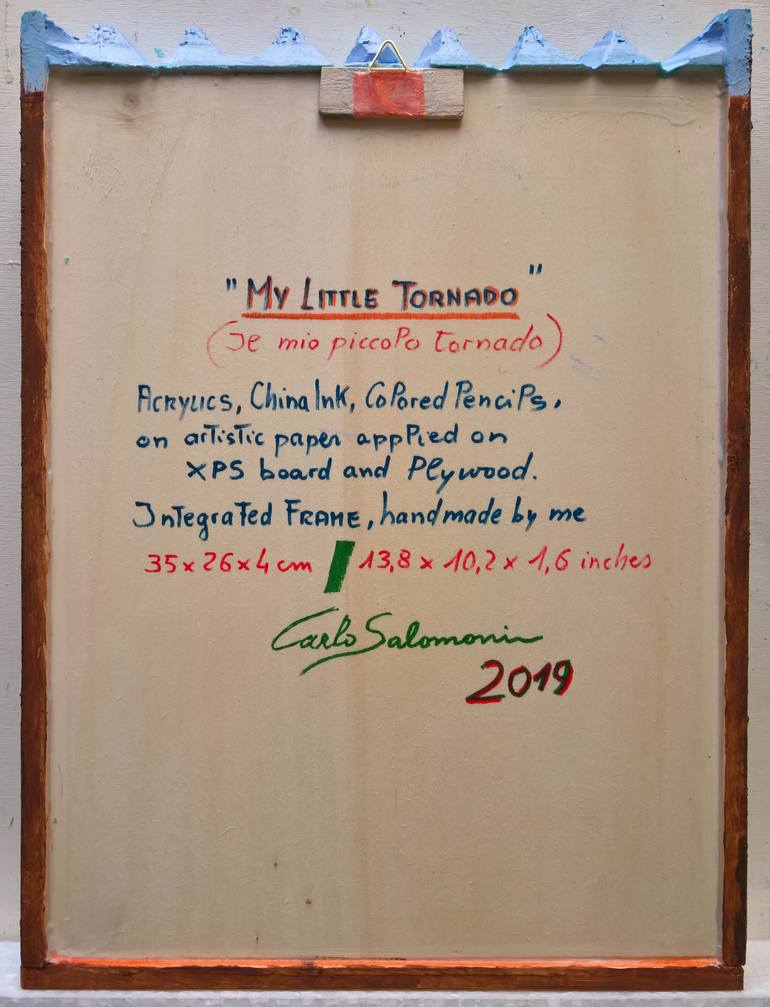 "My Little Tornado"
(Il mio piccolo tornado)
Acrylics, China Ink, Colored Pencils,
on artistic paper applied on
XPS board and Plywood.
Integrated Frame, handmade by me
35x26x4 cm / 13,8 x 10,2 x 1,6 inches
Carlo Salomoni
2019